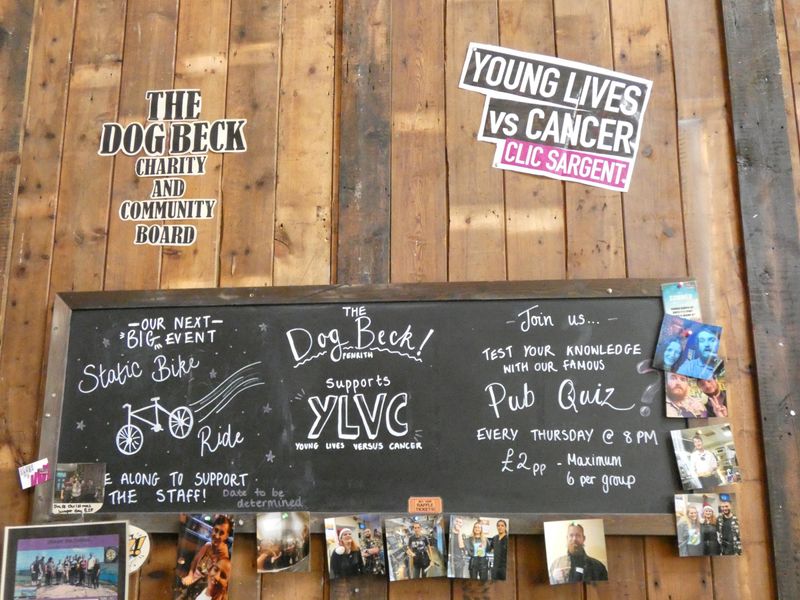 THE
DOG BECK
CHARITY
AND
COMMUNITY
BOARD
YOUNG LIVES
VS CANCER
CLIC SARGENT
- OUR NEXT -
BIG EVENT
Static Bike
Ride
E ALONG TO SUPPORT
THE STAFF!
Date to be
determined
THE
Dog Beck!
PENRITH
Supports
YLVC
YOUNG LIVES VERSUS CANCER
- Join us... -
TEST YOUR KNOWLEDGE
WITH OUR FAMOUS
Pub Quiz!
EVERY THURSDAY @ 8PM
£2pp - Maximum
6 per group
RAFFLE
TICKETS